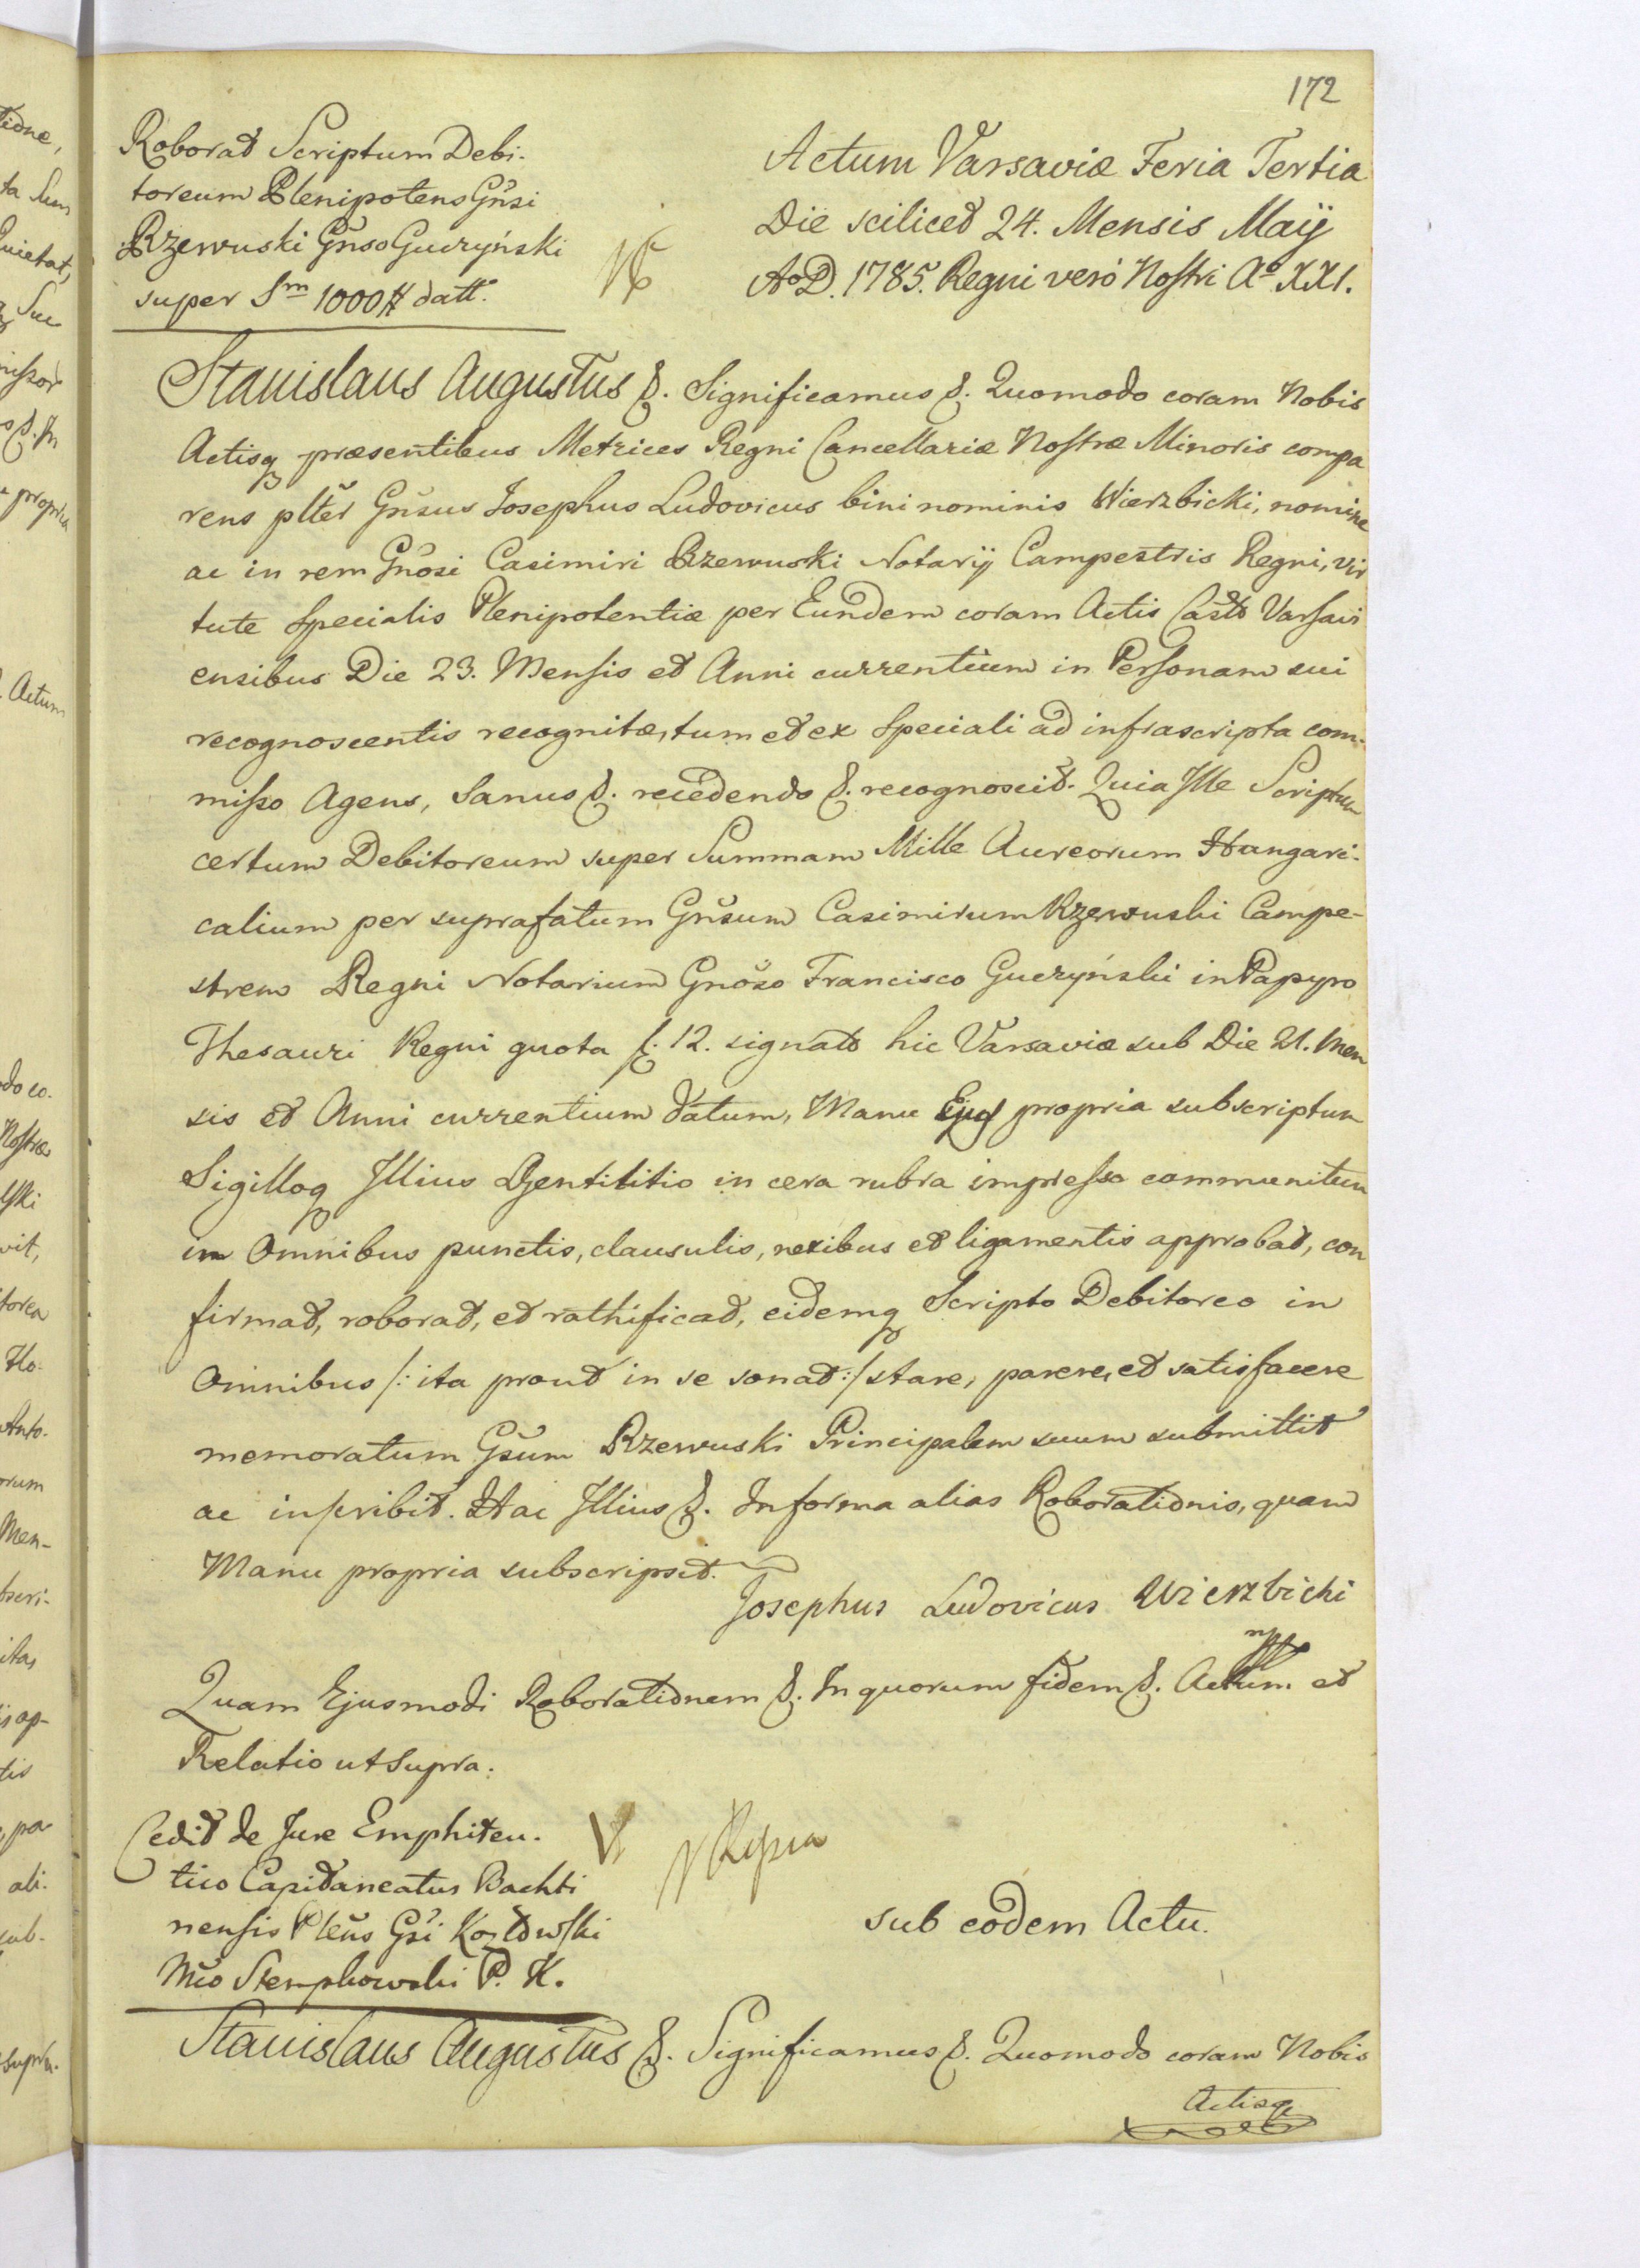 172
Roborat Scriptum Debi-
toreum Plenipotens Gnsi
Rzewuski Gnso Guczyński
super Sm 1000 # datt.
Actum Varsaviæ Feria Tertia
Die scilicet 24. Mensis Maÿ
Ao D. 1785. Regni veró Nostri Ao XXI.
Stanislaus Augustus &. Significamus &. Quomodo coram Nobis
Actisq præsentibus Metrices Regni Cancellariæ Nostræ Minoris compa
rens plter Gnsus Josephus Ludovicus bini nominis Wierzbicki, nomine
ac in rem Gnosi Casimiri Rzewuski Notarÿ Campestris Regni, vir
tute specialis Plenipotentiæ per Eundem coram Actis Castr Varsavi
ensibus Die 23. Mensis et Anni currentium in Personam sui
recognoscentis recognitæ, tum et ex speciali ad infrascripta com-
misso Agens, Sanus &. recedendo &. recognoscit. Quia Ille Scriptum
certum Debitoreum super Summam Mille Aureorum Hungari-
calium per suprafatum Gnsum Casimirum Rzewuski Campe-
strem Regni Notarium Gnoso Francisco Guczyński in Papyro
Thesauri Regni quota f. 12. signato hic Varsaviæ sub Die 21. Men
sis et Anni currentium datum, Manu Ejus propria subscriptum
Sigilloq Illius Gentilitio in cera rubra impresso communitum
in Omnibus punctis, clausulis, nexibus et ligamentis approbat, con
firmat, roborat, et rathificat, eidemq Scripto Debitoreo in
Omnibus /: ita prout in se sonat :/ stare, parere, et satisfacere
memoratum Gsum Rzewuski Principalem suum submittit
ac inscribit. Hac Illius &. In forma alias Roborationis, quam
Manu propria subscripsit.
Josephus Ludovicus Wierzbicki
mpp
Quam Ejusmodi Roborationem &. In quorum fidem &. Actum et
Relatio ut supra.
Cedit de Jure Emphiteu-
tico Capitaneatus Bachti
nensis Plens Gsi Kozłowski
Mco Stempkowski P. K.
sub eodem Actu.
Stanislaus Augustus &. Significamus &. Quomodo coram Nobis
Actisq